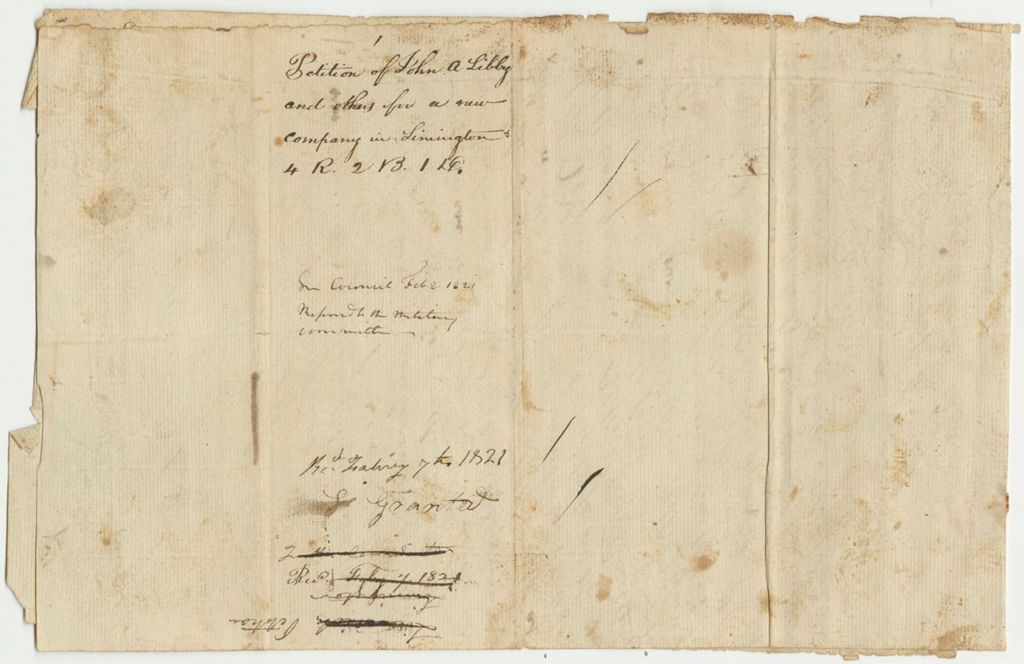 Petition of John A Libby
and others for a new
company in Limington
4 R. 2 B. 1 D.
In Council Feb 2 1821
Refered to the Military
committee
Rec'd Febury 7th 1821
& Granted
Rec'd Feby 7, 1821
Petition